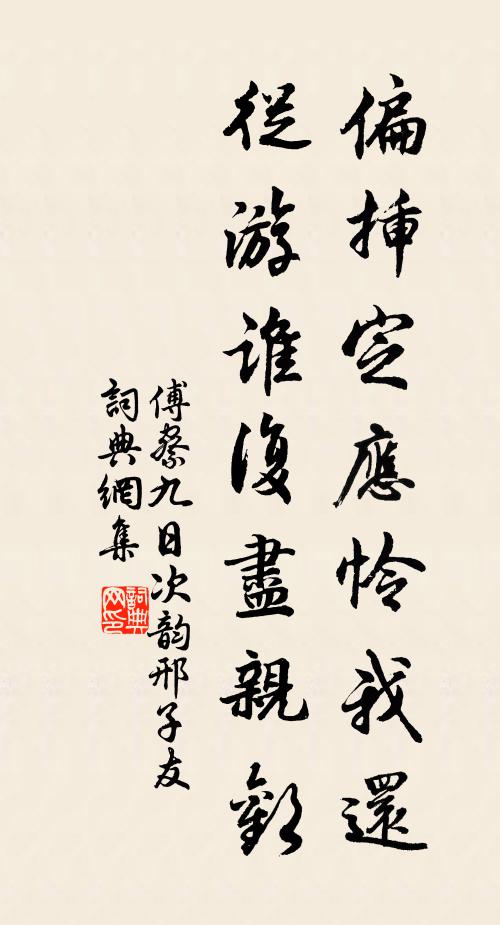 偏挿定應怜我還
從游誰復盡親歡
傅察九日次韵邢子友
詞典網集
詞典网印